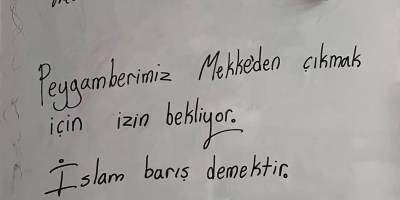 Peygamberimiz Mekke'den çıkmak
için izin bekliyor.
İslam barış demektir.